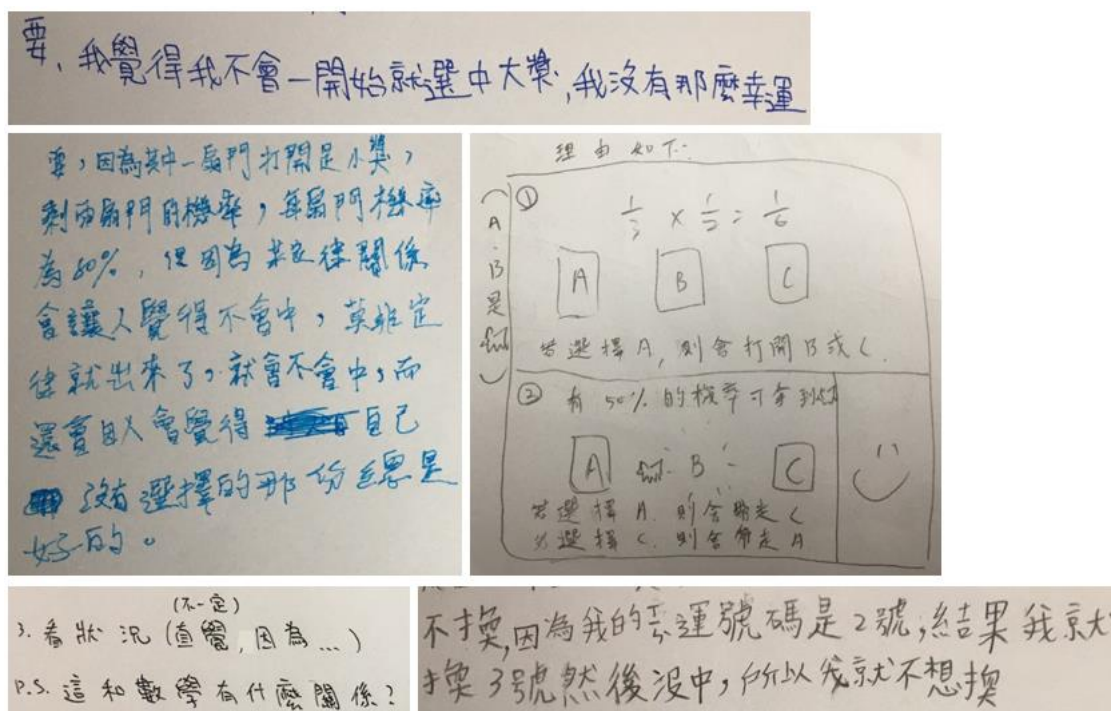 要，我覺得我不會一開始就選中大獎，我沒有那麼幸運
要，因為其中一扇門打開是小獎，
剩兩扇門的機率，每扇門機率
為50%，但因為某定律關係
會讓人覺得不會中，莫非定
律就出來了，就會不會中，而
還會自人會覺得 自己
沒有選擇的那份總是
好的。
理由如下：
(A.B是 )
① 1/3 × 1/2 = 1/6
A B C
若選擇A，則會打開B或C.
② 有50%的機率可拿到
A B C
若選擇A. 則會帶走C
若選擇C. 則會帶走A
(不一定)
3. 看狀況(直覺，因為...)
P.S. 這和數學有什麼關係？
不換，因為我的幸運號碼是2號，結果我就
換3號然後沒中，所以我就不想換